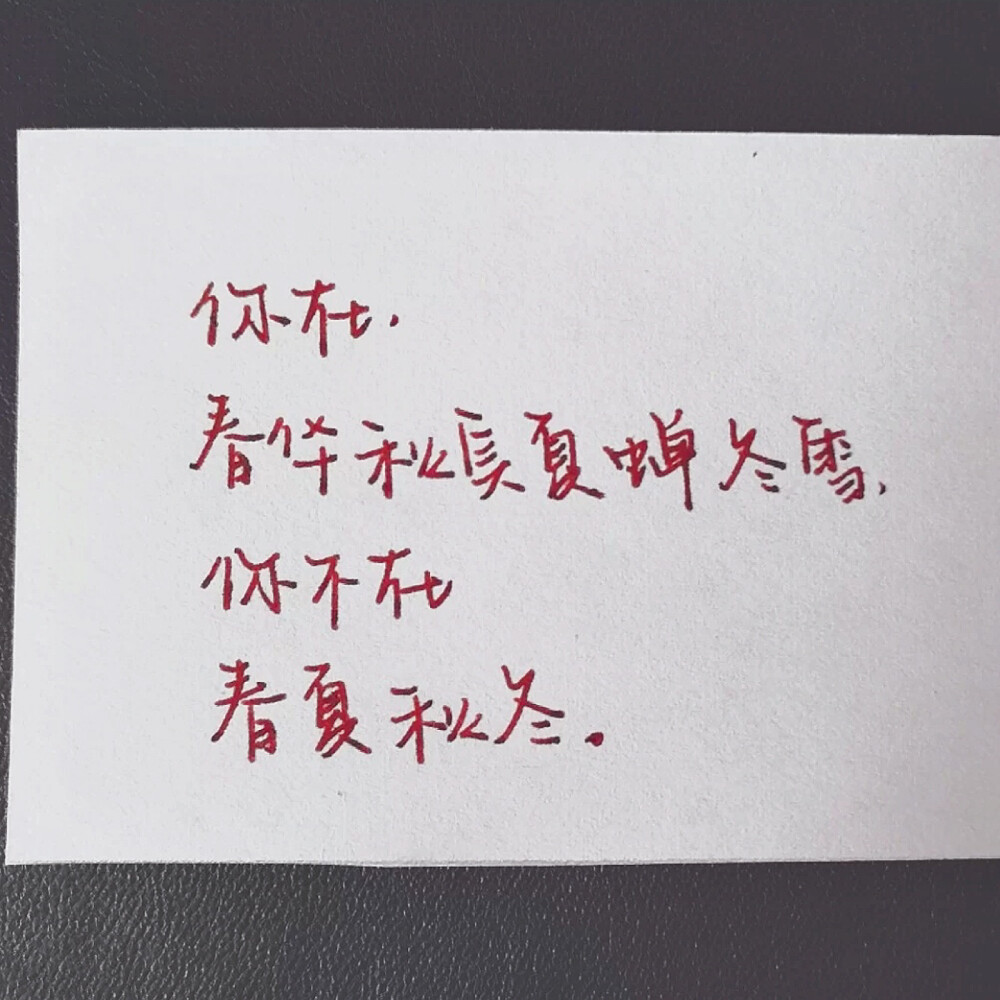 你在，
春华秋夏蝉冬雪，
你不在
春夏秋冬。